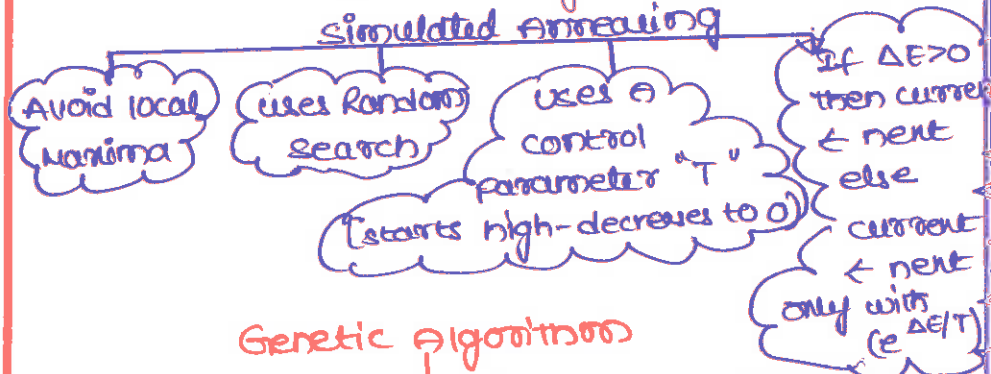 Simulated Annealing
Avoid local
Maxima
uses Random
search
uses A
control
parameter "T"
(starts high-decreases to 0)
If ΔE>0
then curre
← next
else
current
← next
only with
(e^ΔE/T)
Genetic Algorithms